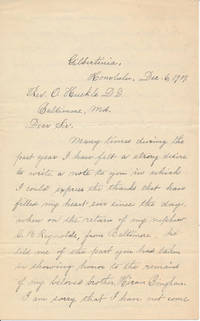 Gilbertinia,
Honolulu, Dec. 6, 1909.
Rev. O. Huckle D.D.
Baltimore, Md.
Dear Sir.
Many times during the
past year I have felt a strong desire
to write a note to you in which
I could express the thanks that have
filled my heart ever since the day,
when on the return of my nephew,
Reynolds, from Baltimore, he
told me of the part you had taken
in showing honor to the remains
of my beloved brother Hiram Bingham.
I am sorry that I have not come